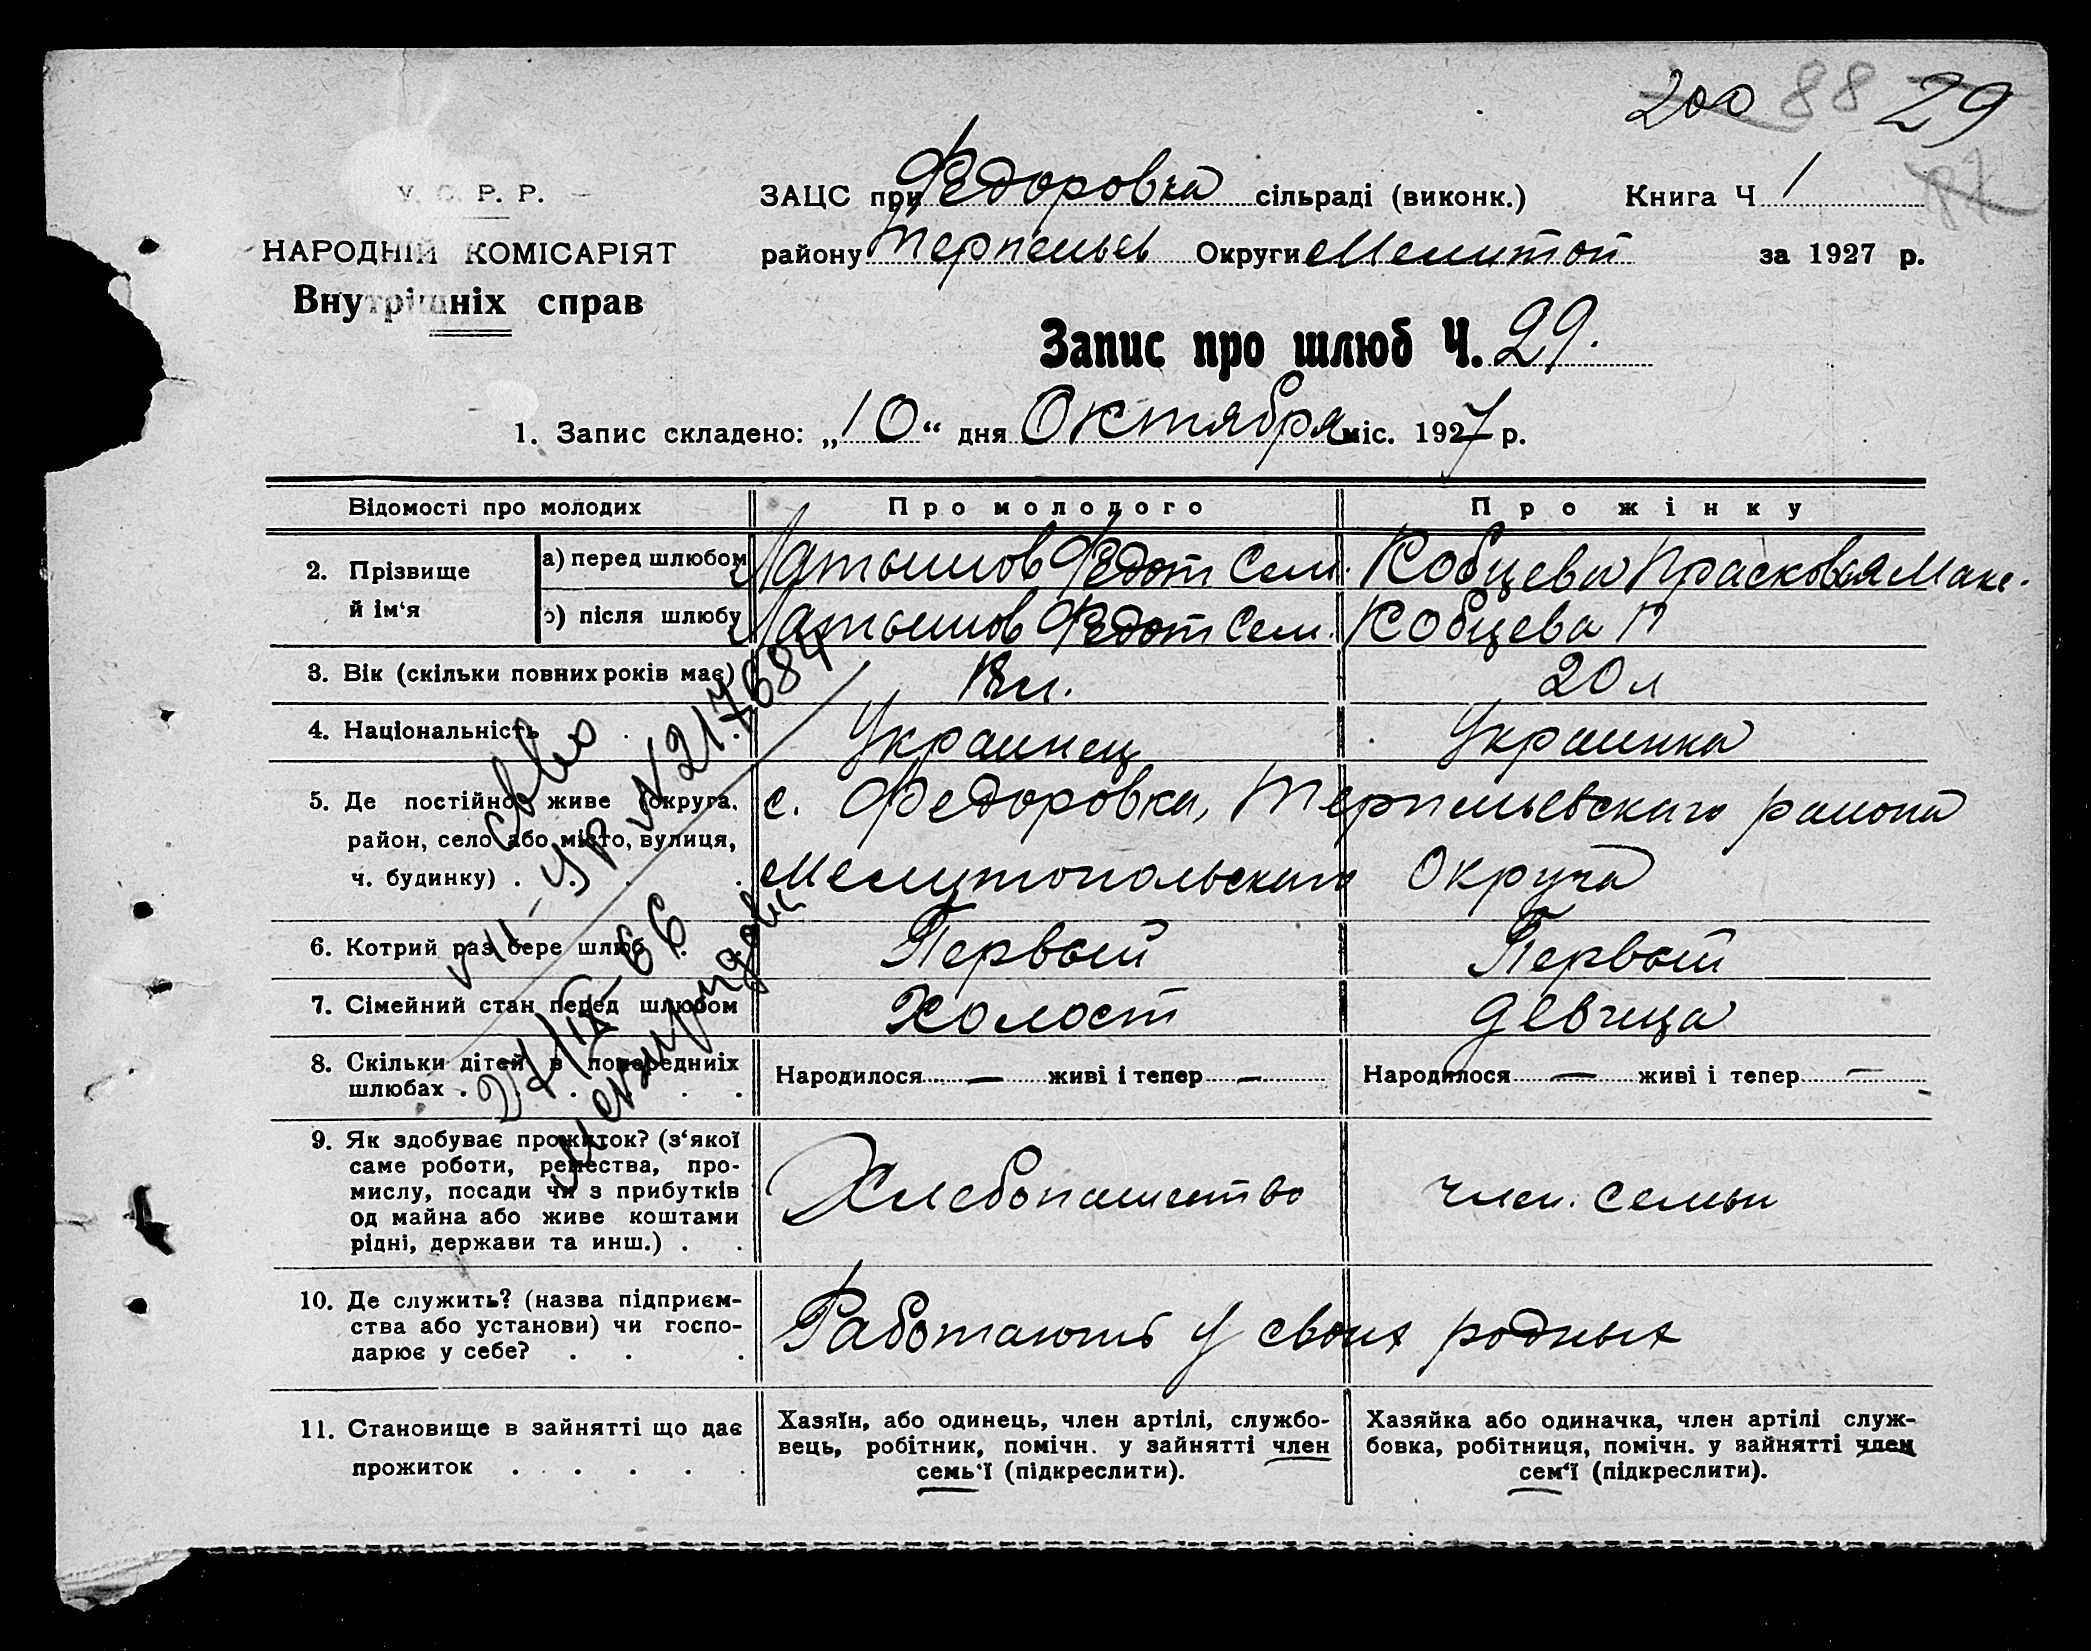 200 88 29
87
У. С. Р. Р.
НАРОДНІЙ КОМІСАРІЯТ
Внутрішніх справ
ЗАЦС при Федоровка сільраді (виконк.) Книга Ч 1
району Терпеньев Округи Мелитоп за 1927 р.
Запис про шлюб Ч. 29.
1. Запис складено: „10“ дня Октября міс. 1927 р.
Відомості про молодих Про молодого Про жінку
2. Прізвище й ім‘я
а) перед шлюбом Латышов Федот Сем. Кобцева Прасковья Макс.
б) після шлюбу Латышов Федот Сем. Кобцева П
3. Вік (скільки повних років має) 18 л. 20 л
4. Національність Украинец Украинка
5. Де постійно живе (округа, район, село або місто, вулиця, ч. будинку) . . .
с. Федоровка, Терпеньевскаго района
Мелитопольскаго Округа
6. Котрий раз бере шлюб . . Первый Первый
7. Сімейний стан перед шлюбом Холост девица
8. Скільки дітей в попередниіх шлюбах . . . . . Народилося — живі і тепер — Народилося — живі і тепер —
9. Як здобуває прожиток? (з‘якої
саме роботи, ремества, про-
мислу, посади чи з прибутків
од майна або живе коштами
рідні, держави та инш.) . .
Хлебопашество член. семьи
10. Де служить? (назва підприєм-
ства або установи) чи госпо-
дарює у себе? . . .
Работають у своих родных
11. Становище в зайнятті що дає
прожиток . . . . .
Хазяїн, або одинець, член артілі, службо-
вець, робітник, помічн. у зайнятті член
семь‘ї (підкреслити).
Хазяйка або одиначка, член артілі служ-
бовка, робітниця, помічн. у зайнятті член
сем‘ї (підкреслити).
св-во
УР № 217684